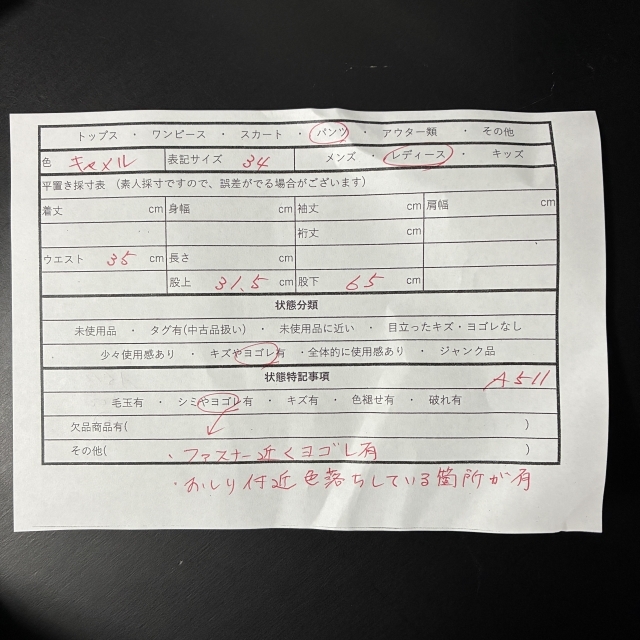 トップス ・ ワンピース ・ スカート ・ パンツ ・ アウター類 ・ その他
色 キャメル 表記サイズ 34 メンズ ・ レディース ・ キッズ
平置き採寸表 (素人採寸ですので、誤差がでる場合がございます)
着丈 cm 身幅 cm 袖丈 cm 肩幅 cm
裄丈 cm
ウエスト 35 cm 長さ cm
股上 31.5 cm 股下 65 cm
状態分類
未使用品 ・ タグ有(中古品扱い) ・ 未使用品に近い ・ 目立ったキズ・ヨゴレなし
・ 少々使用感あり ・ キズやヨゴレ有 ・全体的に使用感あり ・ ジャンク品
状態特記事項 A511
毛玉有 ・ シミやヨゴレ有 ・ キズ有 ・ 色褪せ有 ・ 破れ有
欠品商品有( )
その他( ・ファスナー近くヨゴレ有 )
・おしり付近色落ちしている箇所が有